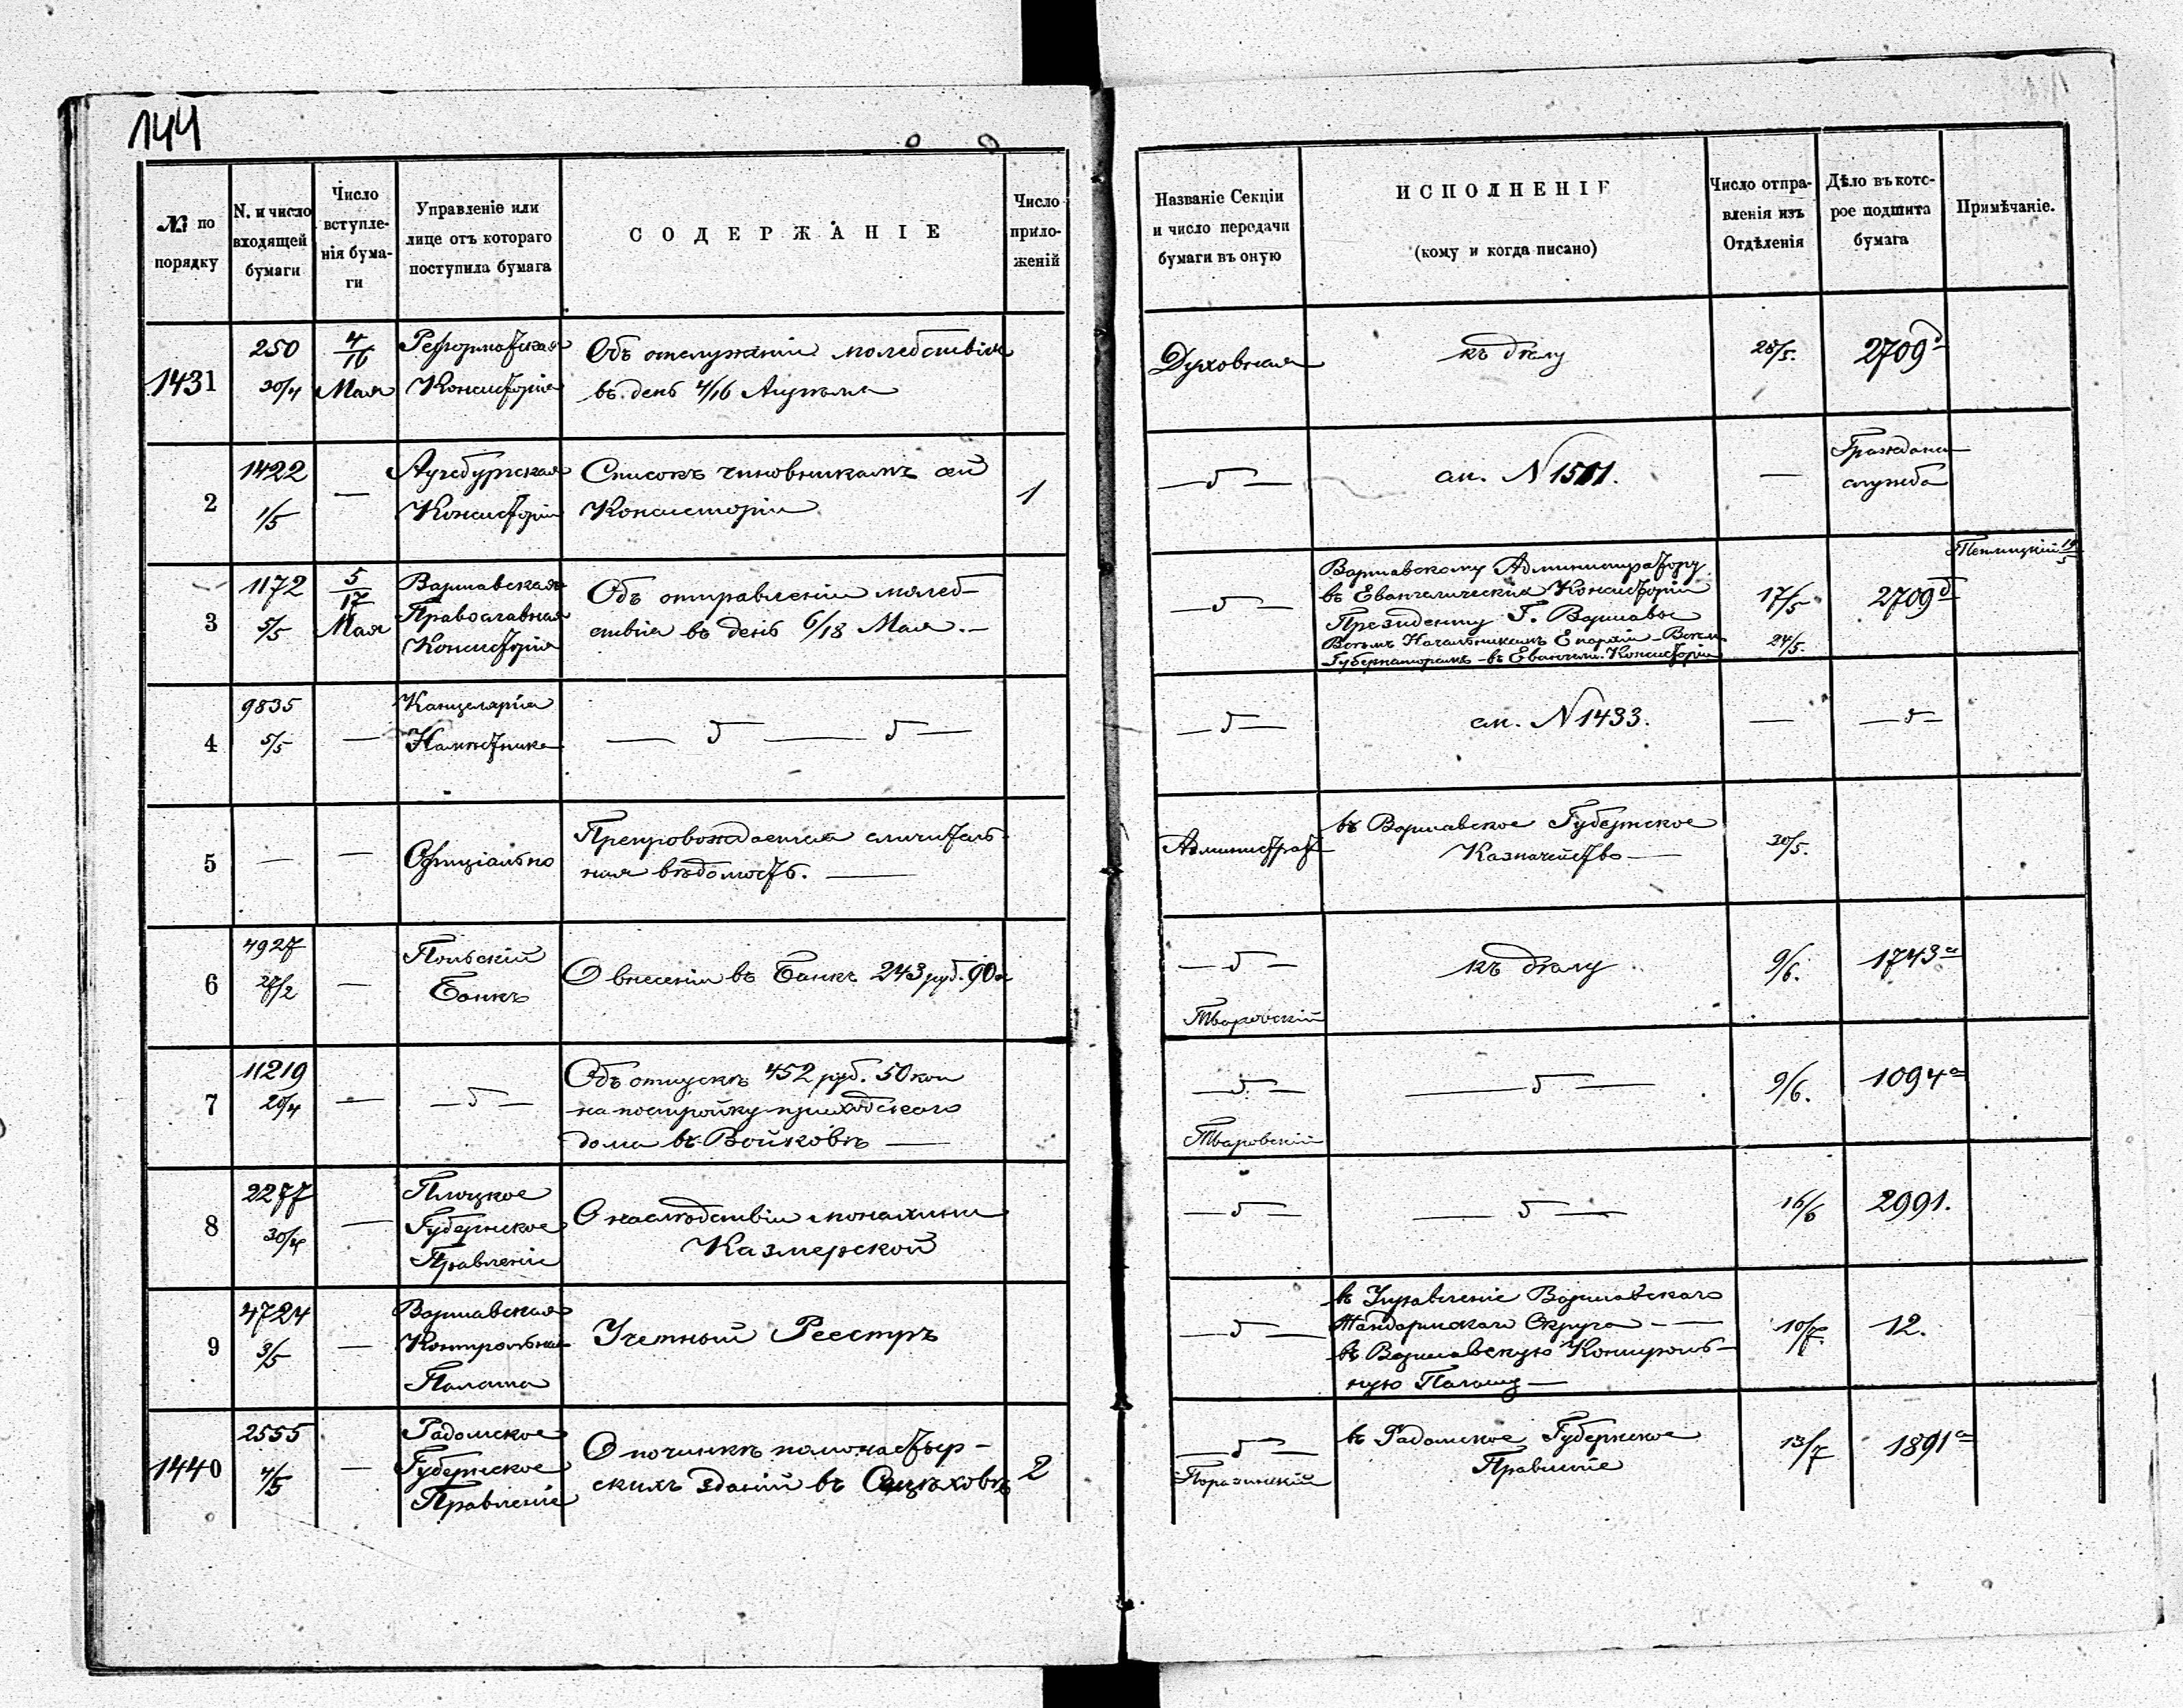 144
№ по порядку
N. и число входящей бумаги
Число вступле-нія бума-ги
Управленіе или лице отъ котораго поступила бумага
СОДЕРЖАНІЕ
Число прило-женій
Названіе Секціи и число передачи бумаги въ оную
ИСПОЛНЕНІЕ
(кому и когда писано)
Число отпра-вленія изъ Отдѣленія
Дѣло въ кото-рое подшита бумага
Примѣчаніе.
1431
250
30/4
4/16 Мая
Реформатская
Консисторія
Объ отслуженіи молебствія
въ день 4/16 Апрѣля
Духовная
къ дѣлу
28/5.
2709 д
2
1422
1/5
—
Аугсбургская
Консисторія
Списокъ чиновникамъ сей
Консисторіи
1
— „ —
см. N 1511.
—
Гражданск
служба
3
1172
5/5
5/17 Мая
Варшавская
Православная
Консисторія
Объ отправленіи молеб-
ствія въ день 6/18 Мая. —
— „ —
Варшавскому Администратору
въ Евангелическія Консисторіи
Президенту Г. Варшавы
Всѣмъ Начальникамъ Епархіи – Всѣм
Губернаторамъ – въ Евангели. Консисторіи
17/5
24/5.
2709 д
19/5
4
9835
5/5
—
Канцелярія
Намѣстника
— „ — „ —
— „ —
см. N 1433.
—
— „ —
5
—
—
Офиціально
Препровождается сличитель-
ная вѣдомость. —
Администрат
въ Варшавское Губернское
Казначейство —
30/5.
6
4927
27/2
—
Польскій
Банкъ
О внесеніи въ Банкъ 243 руб. 90 к
— „ —
Тваровскій
къ дѣлу
9/6.
1743 а
7
11219
20/4
—
— „ —
Объ отпускѣ 452 руб. 50 коп
на постройку приходскаго
дома въ Войковѣ —
— „ —
Тваровскій
— „ —
9/6.
1094 а
8
2277
30/4
—
Плоцкое
Губернское
Правленіе
О наслѣдствіи монахини
Казмерской
— „ —
— „ —
16/6
2991.
9
4724
3/5
—
Варшавская
Контрольная
Палата
Учетный Реестръ
— „ —
въ Управленіе Варшавскаго
Жандармскаго Округа — —
въ Варшавскую Контроль-
ную Палату —
10/7
12.
1440
2555
4/5
—
Радомское
Губернское
Правленіе
О починкѣ помонастыр-
скихъ зданій въ Сецѣховѣ
2
— „ —
Поразинскій
въ Радомское Губернское
Правленіе
13/7
1891 а